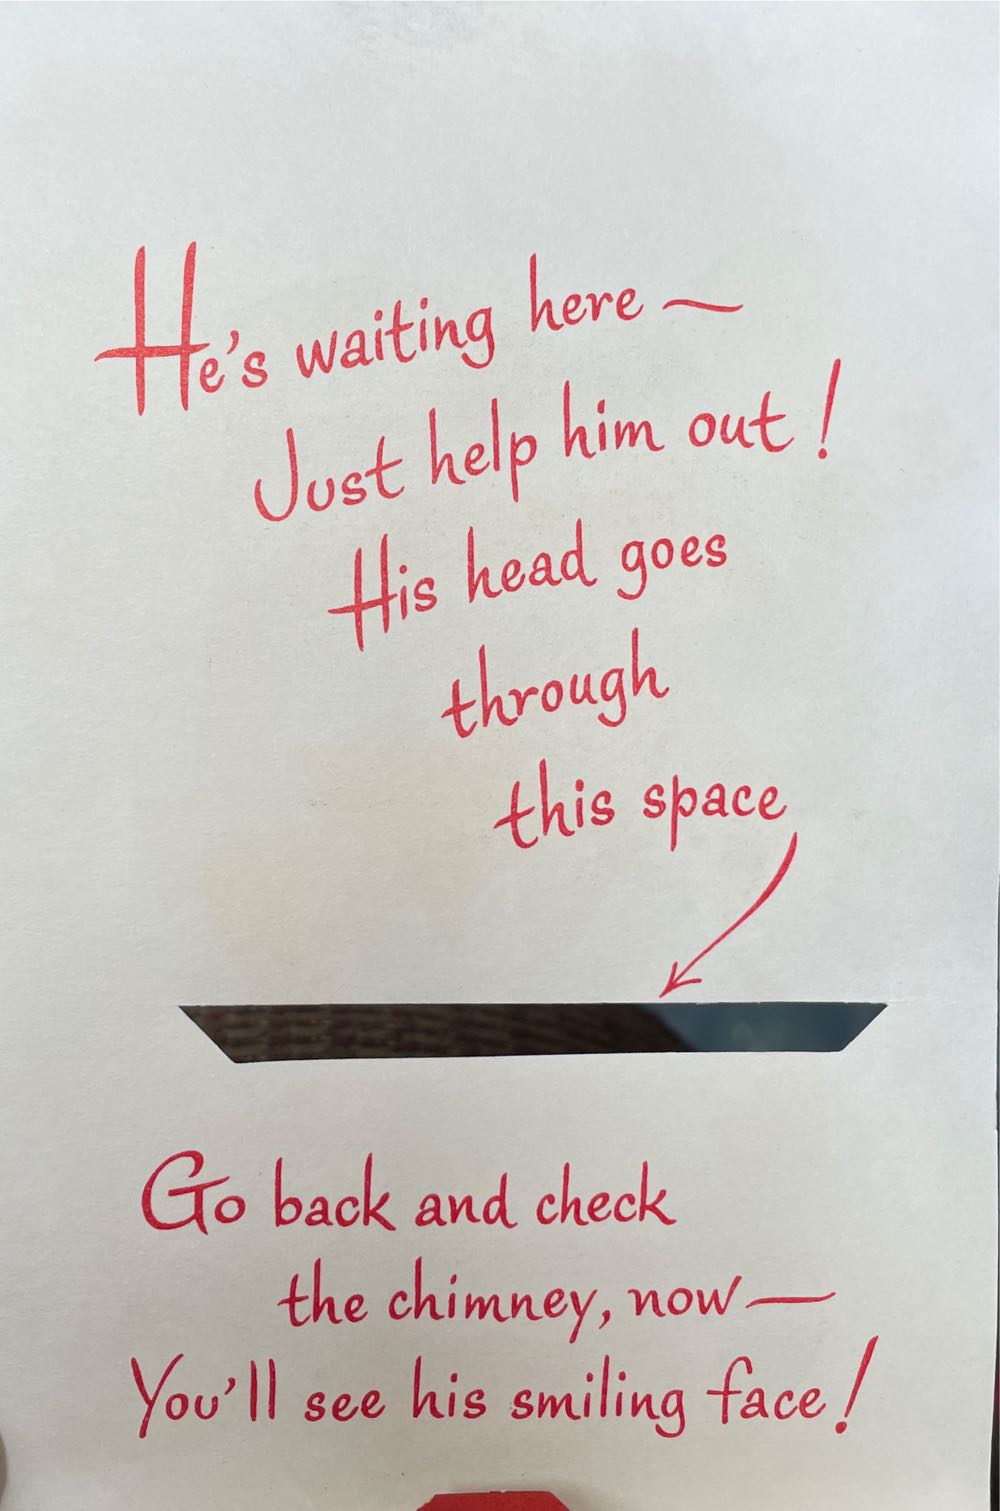 He's waiting here —
Just help him out!
His head goes
through
this space
Go back and check
the chimney, now —
You'll see his smiling face!